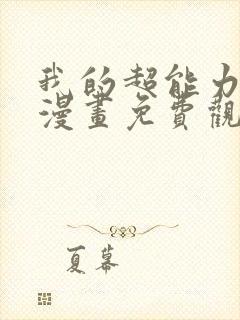 我的超能力
漫畫免費觀
夏幕